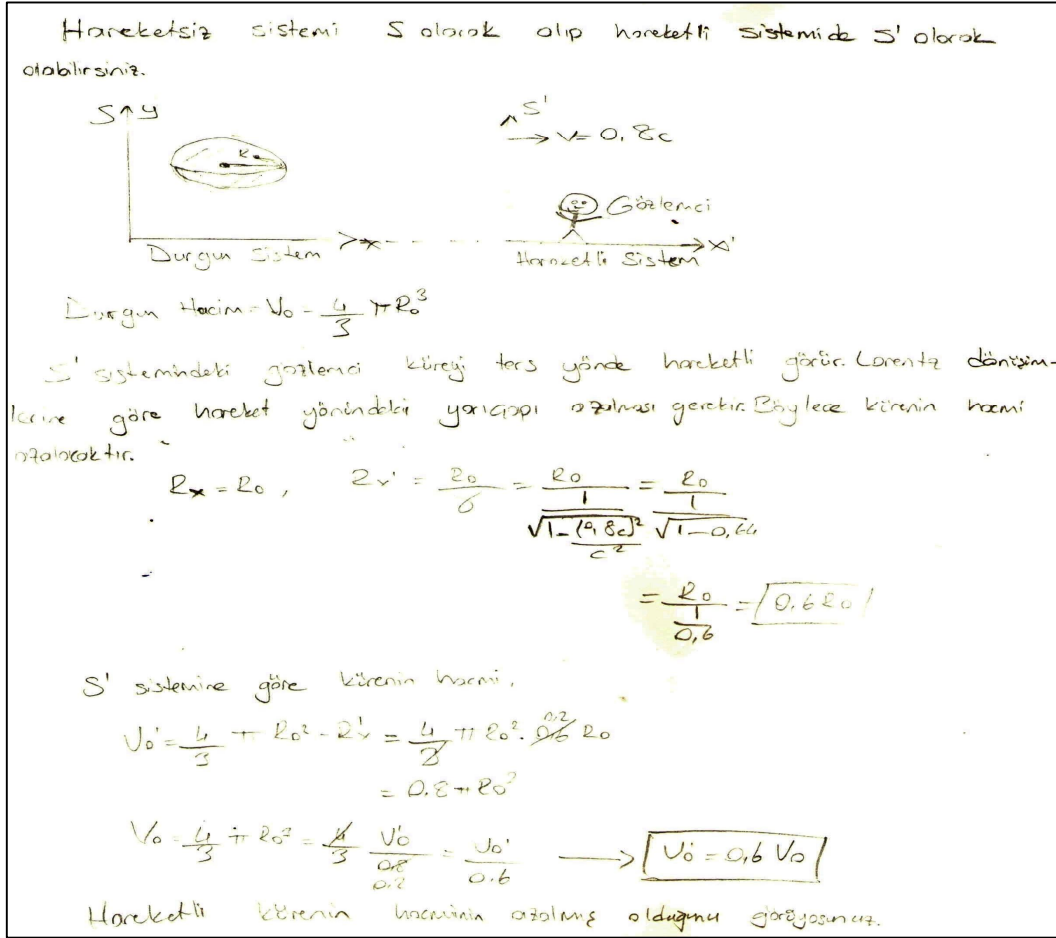 Hareketsiz sistemi S olarak alıp hareketli sistemi de S' olarak
alabilirsiniz.
S y S'
v = 0,8c
R
Gözlemci
x x'
Durgun Sistem Hareketli Sistem
Durgun Hacim = V₀ = 4/3 π R₀³
S' sistemindeki gözlemci küreyi ters yönde hareketli görür. Lorentz dönüşüm-
lerine göre hareket yönündeki yarıçapı azalması gerekir. Böylece kürenin hacmi
azalacaktır.
= R₀ / (1/√(1-(0,8c)²/c²)) = R₀ / (1/√(1-0,64))
= R₀ / (1/0,6) = 0,6 R₀
S' sistemine göre kürenin hacmi,
= 0.8 π R₀³
→ V₀' = 0,6 V₀
Hareketli kürenin hacminin azalmış olduğunu görüyosunuz.